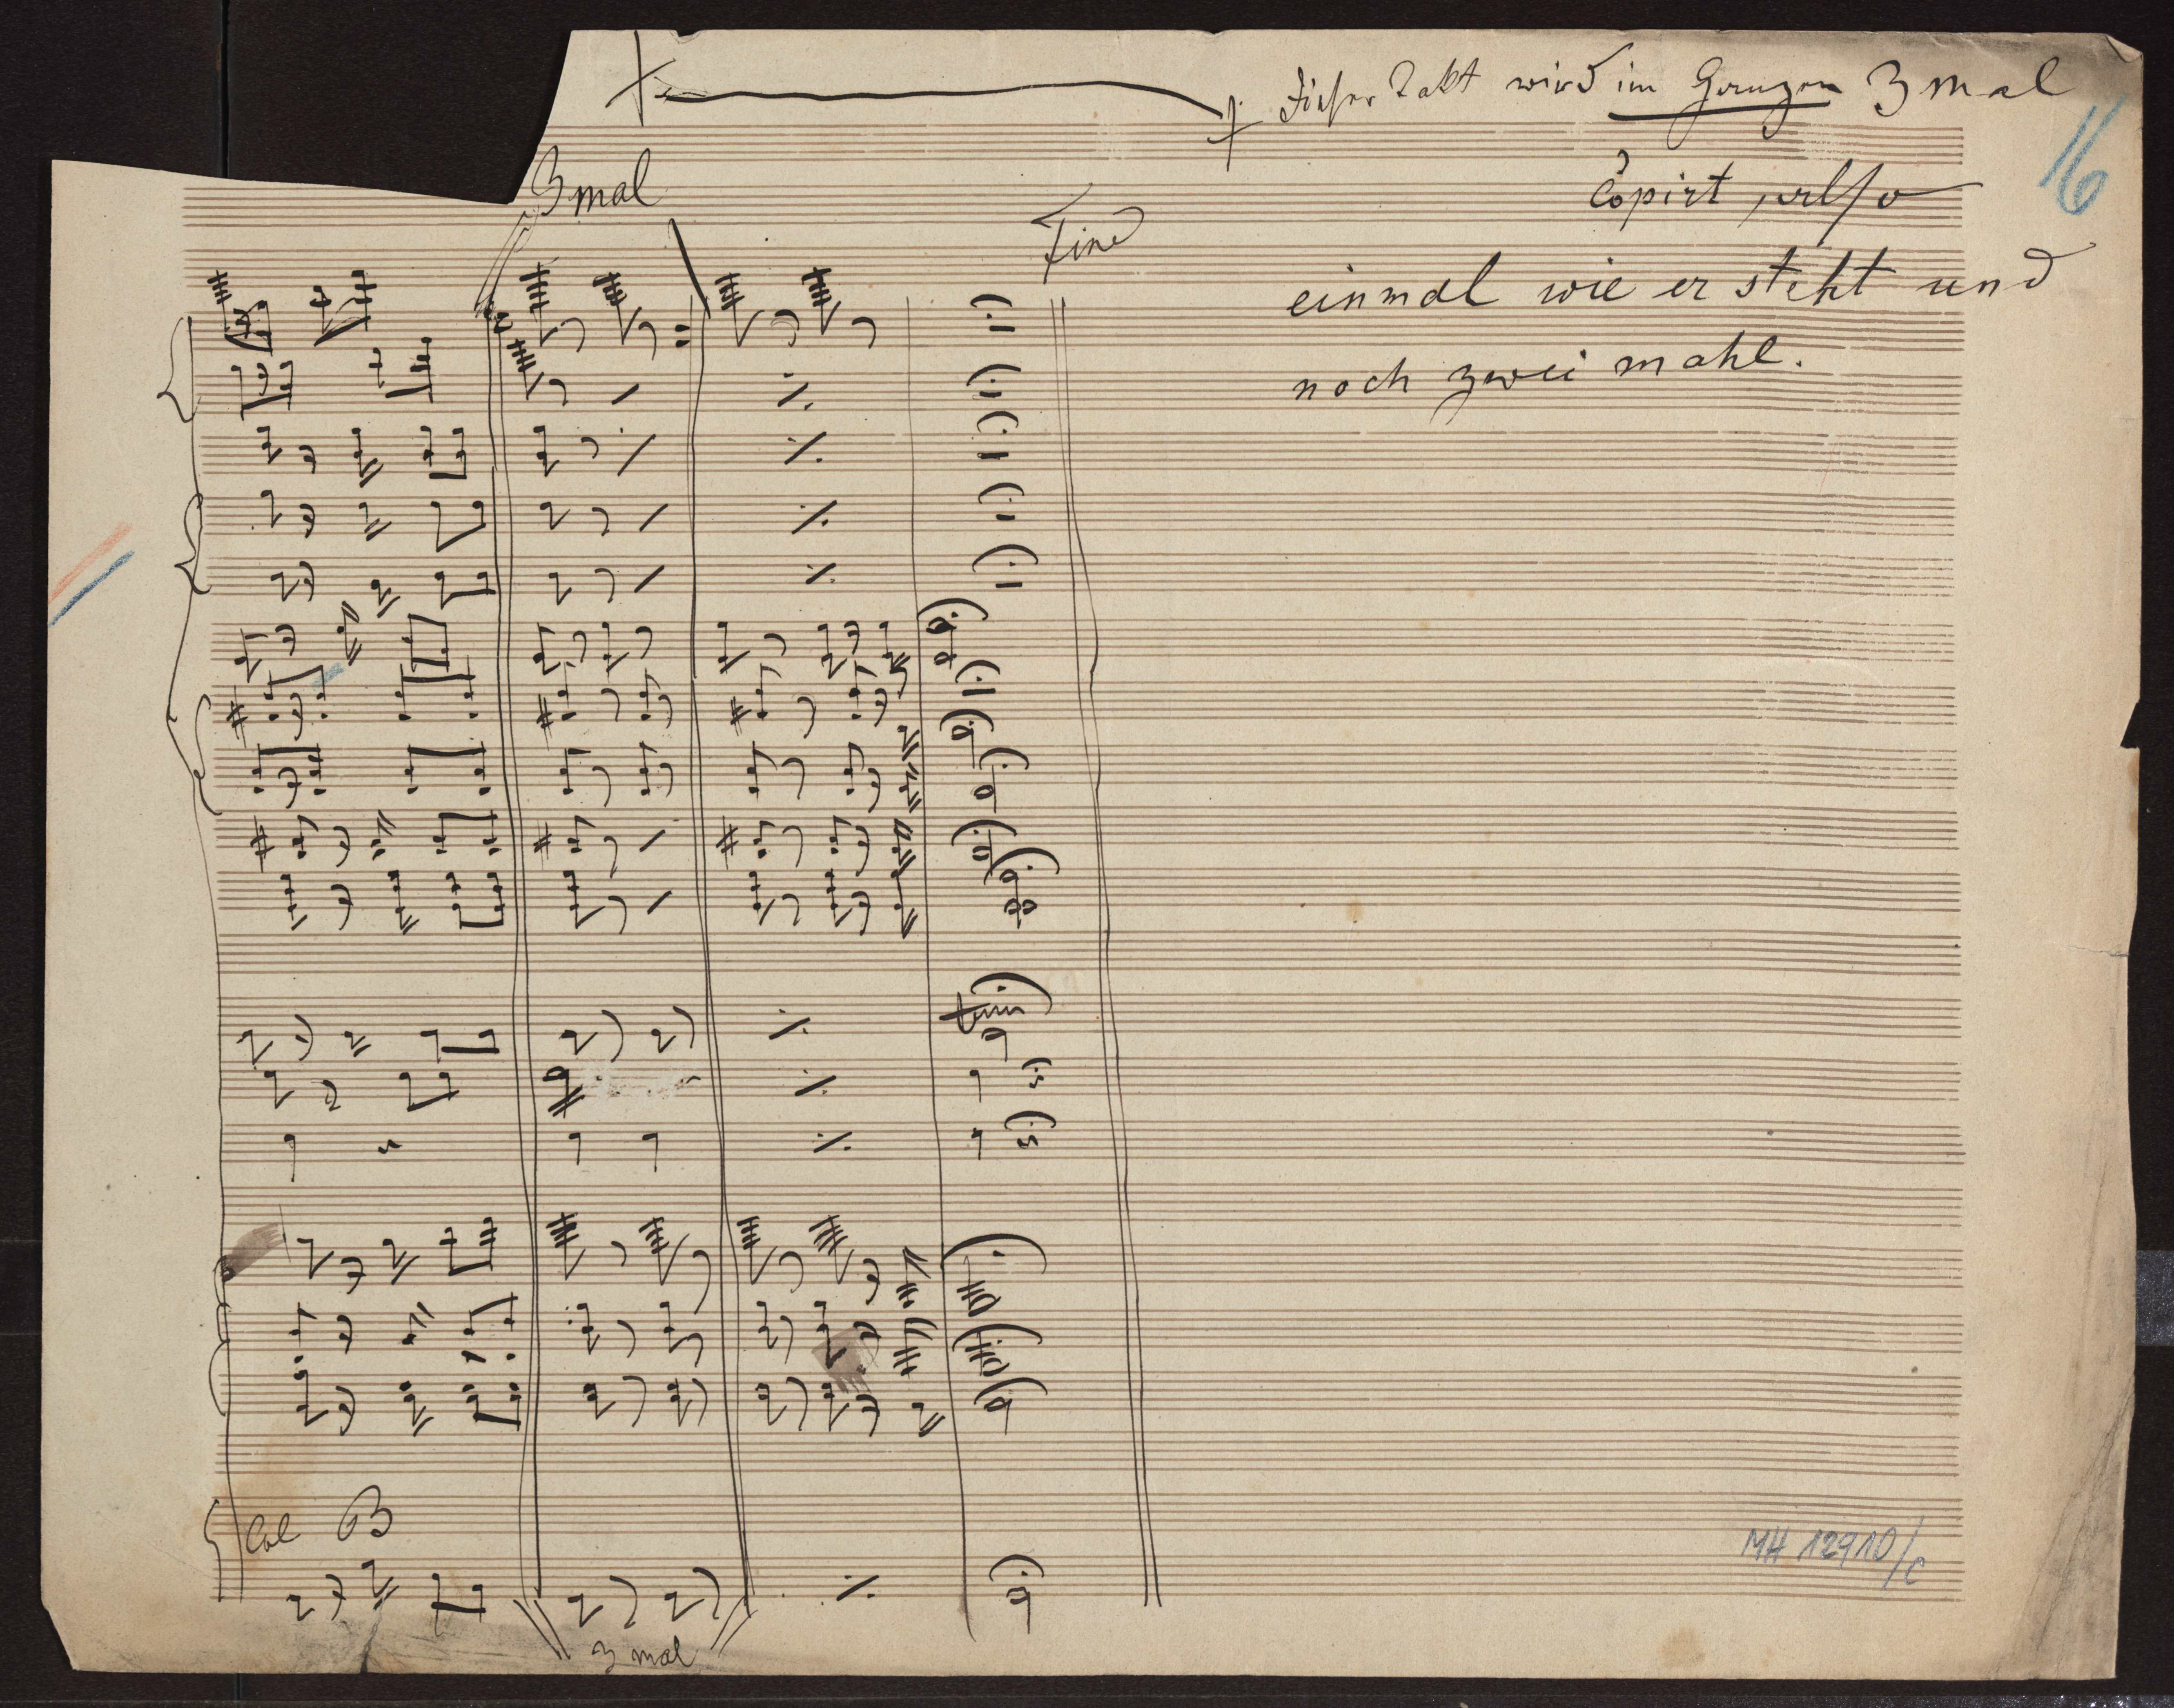 Dieser Takt wird im Ganzen 3 mal
16
3 mal
copirt, also
Fine
einmal wie er steht und
noch zwei mahl.
Col B
MH 12910/c
3 mal